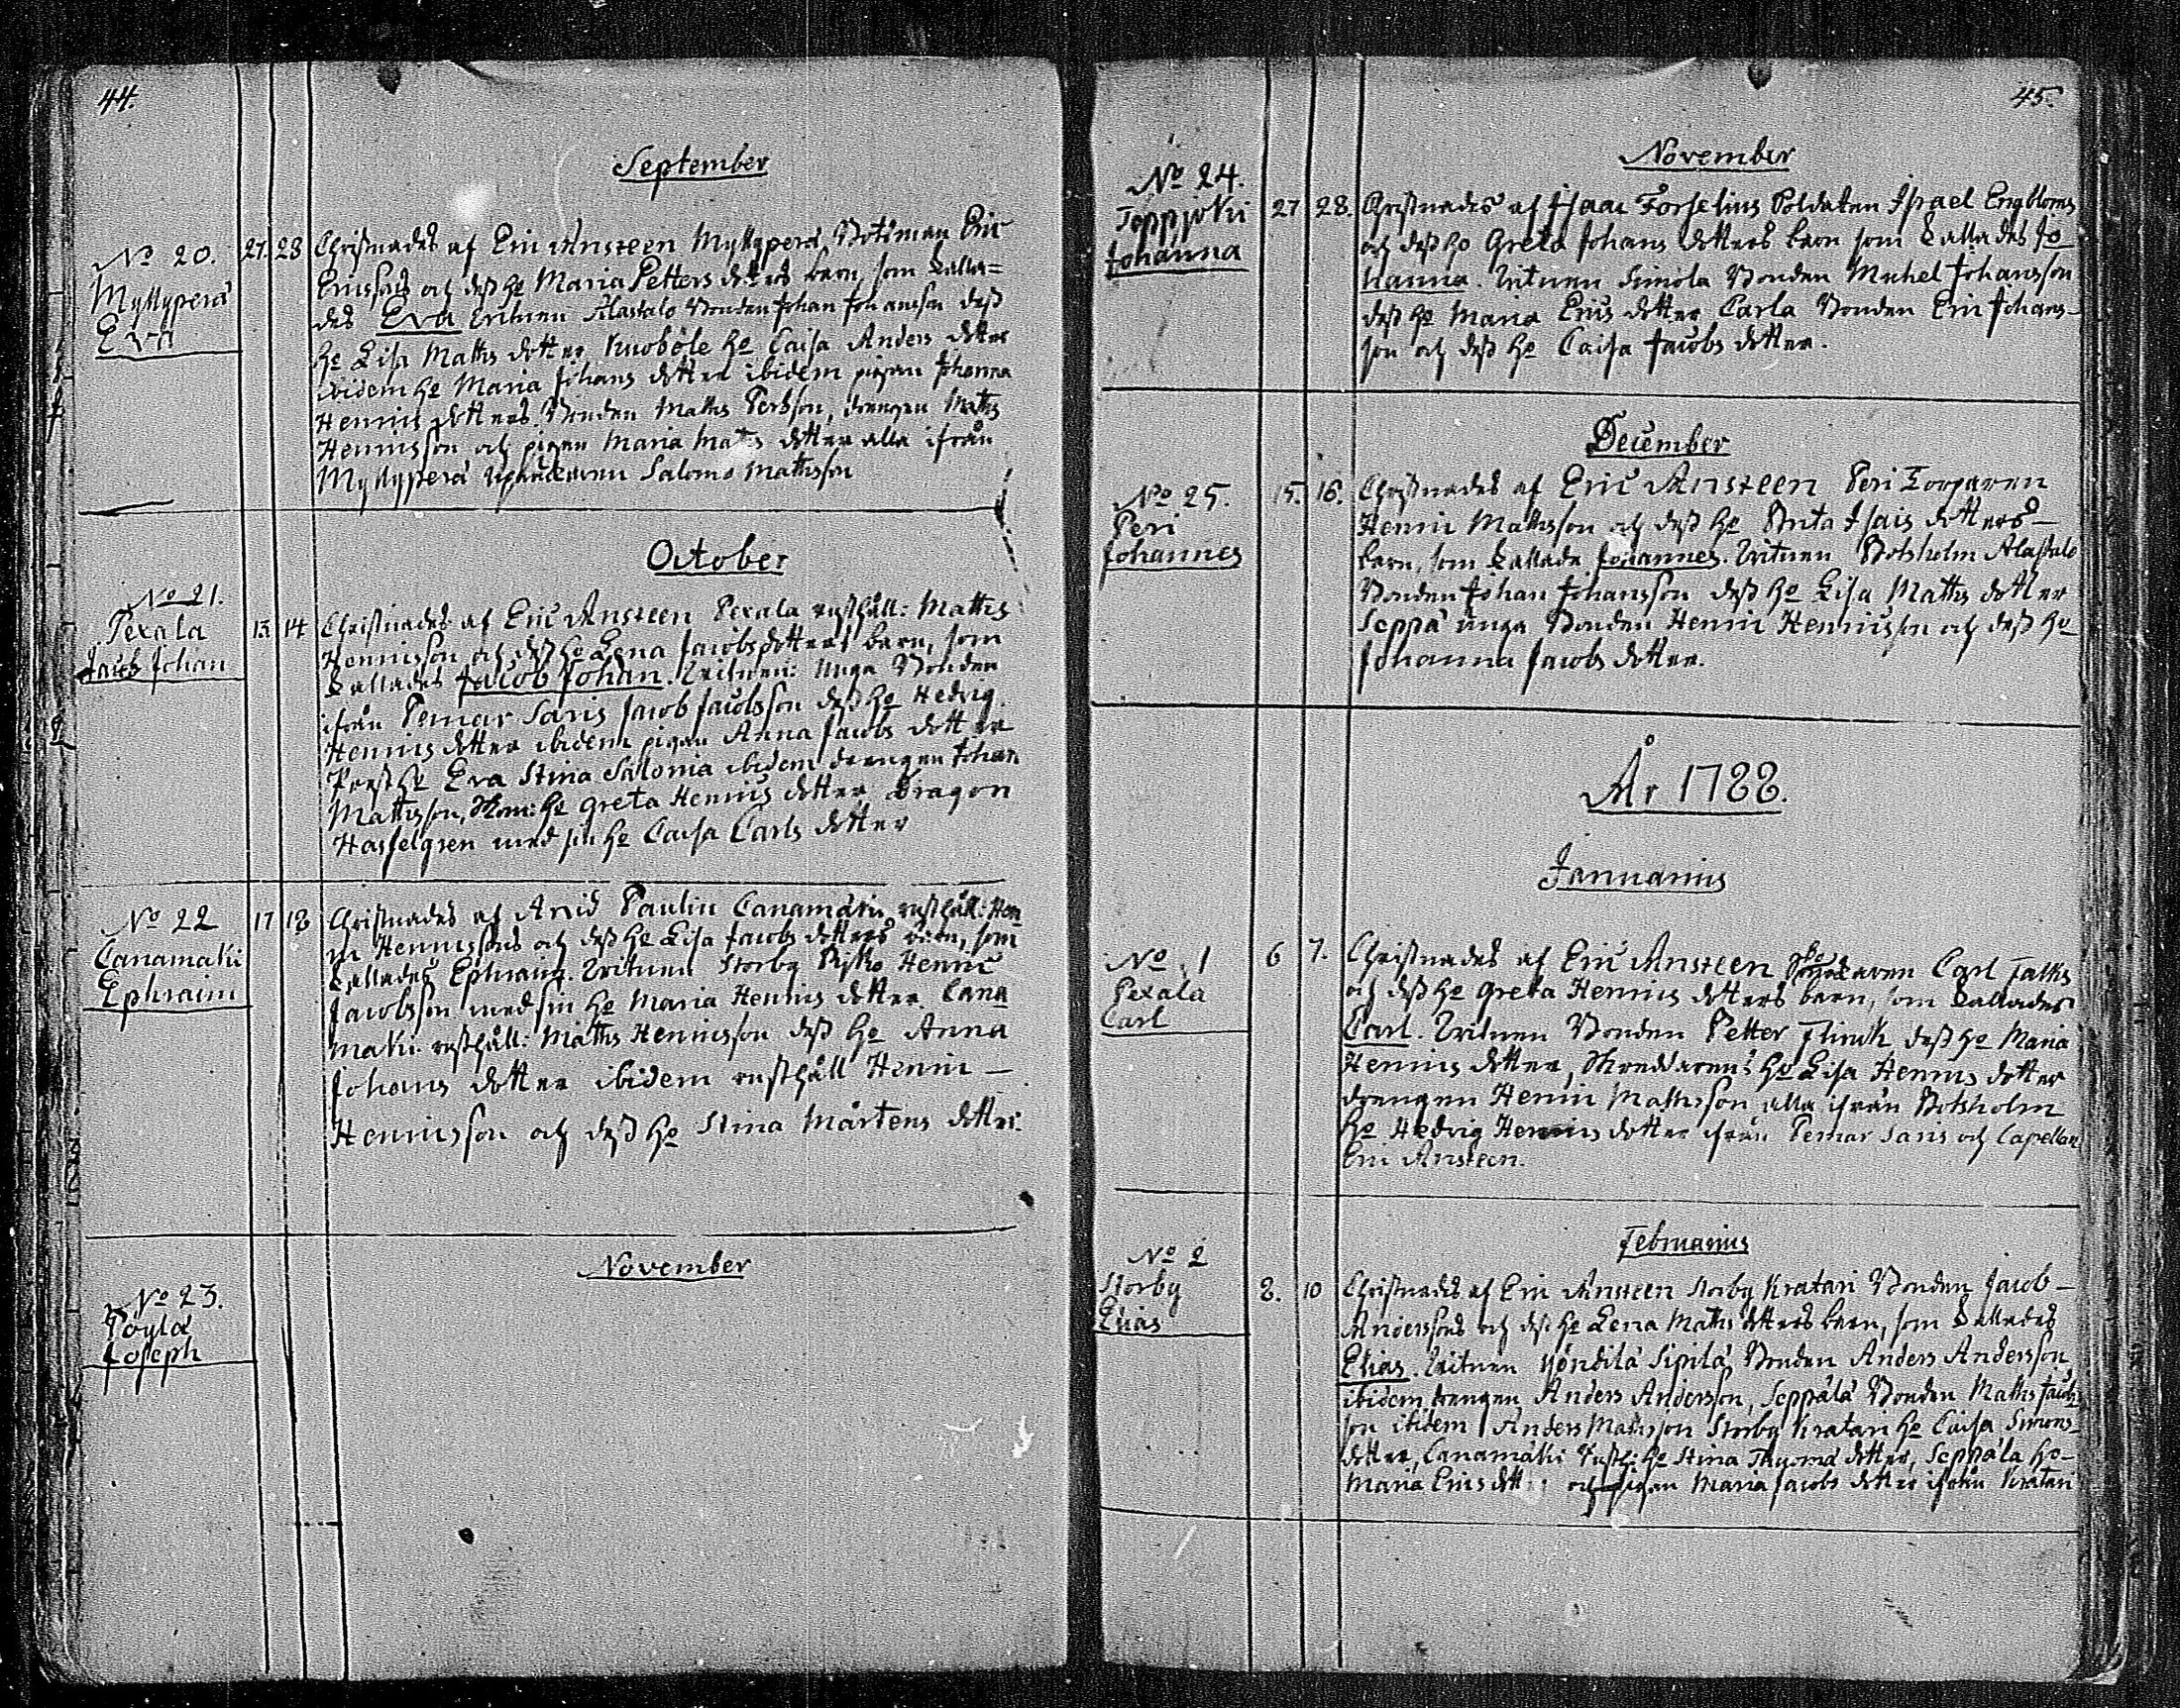 44.
September
No 20.
Myllyperä
Eva
27. 28
Christnades af Eric Ansteen Myllyperä Båtsman Eric
Ericssons och dess ho Maria Petters dotters barn, som kalla=
des Eva Witnen Alastalo Bonden Johan Johansson dess
ho Lisa Matts dotter, Knuoböle ho Caisa Anders dotter
ibidem ho Maria Johans dotter ibidem pigan Johanna
Henrics dotters. Bonden Matts Persson, drengen Matts
Henricsson och pigan Maria Matts dotter alla ifrån
Myllyperä Salomo Mattsson
October
No 21.
Pexala
Jacob Johan
13. 14
Christnades af Eric Ansteen Pexala rusthåll: Matts
Henricsson och dess ho Lena Jacobs dotters barn, som
kallades Jacob Johan. Witnen: Unga Bonden
ifrån Pemar Saris Jacob Jacobsson dess ho Hedvig
Henrics dotter ibidem pigan Anna Jacobs dotter
ho Eva Stina Salonia ibidem drengen Johan
Mattsson, ho Greta Henrics dotter Dragon
Hasselgren med sin ho Caisa Carls dotter
No 22
Canamäki
Ephraim
17 18
Christnades af Arvid Paulin Canamäki rusthåll: Hen
ric Henricssons och dess ho Lisa Jacobs dotters barn, som
kallades Ephraim. Witnen Storby Pijko Henric
Jacobsson med sin ho Maria Henrics dotter Cana
mäki rusthåll: Matts Henricsson dess ho Anna
Johans dotter ibidem rusthåll Henric –
Henricsson och dess ho Stina Mårtens dotter.
November
No 23.
Pöylä
Joseph
45.
November
No 24.
Toppjoki
Johanna
27 28.
Christnades af Isaac Forselius Soldaten Israel Engbloms
och dess ho Greta Johans dotters barn som kallades Jo
hanna. Witnen Simola Bonden Michel Johansson
dess ho Maria Erics dotter Carla Bonden Eric Johans-
son och dess ho Caisa Jacobs dotter.
December
No 25.
Peri
Johannes
15. 16.
Christnades af Eric Ansteen Peri Torparen
Henric Mattsson och dess ho Brita Isacs dotters –
barn, som kallade Johannes. Witnen Botsholm Alastalo
Bonden Johan Johansson dess ho Lisa Matts dotter
Seppä unga Bonden Henric Henricsson och dess ho
Johanna Jacobs dotter.
År 1788.
Januarius
No 1
Pexala
Carl
6 7.
Christnades af Eric Ansteen Carl Falks
och dess ho Greta Henrics dotters barn, som kallades
Carl. Witnen Bonden Petter Flinck dess ho Maria
Henrics dotter, Skreddarens ho Lisa Henrics dotter
drengen Henric Mattsson alla ifrån Botsholm
ho Hedvig Henrics dotter ifrån Pemar Saris och Capellan
Eric Ansteen.
Februarius
No 2
Storby
Elias
8. 10
Christnades af Eric Ansteen Storby Kratari Bonden Jacob –
Anderssons och dess ho Lena Matts dotters barn, som kallades
Elias. Witnen Nöndilä Sipilä Bonden Anders Andersson
ibidem drengen Anders Andersson, Seppälä Bonden Matts Jacobs
son ibidem Anders Mattsson Storby Kratari ho Caisa Simons-
dotter, Canamäki Rusth: ho Stina dotter, Seppälä ho-
Maria Erics dott: och pigan Maria Jacobs dotter ifrån Kratari